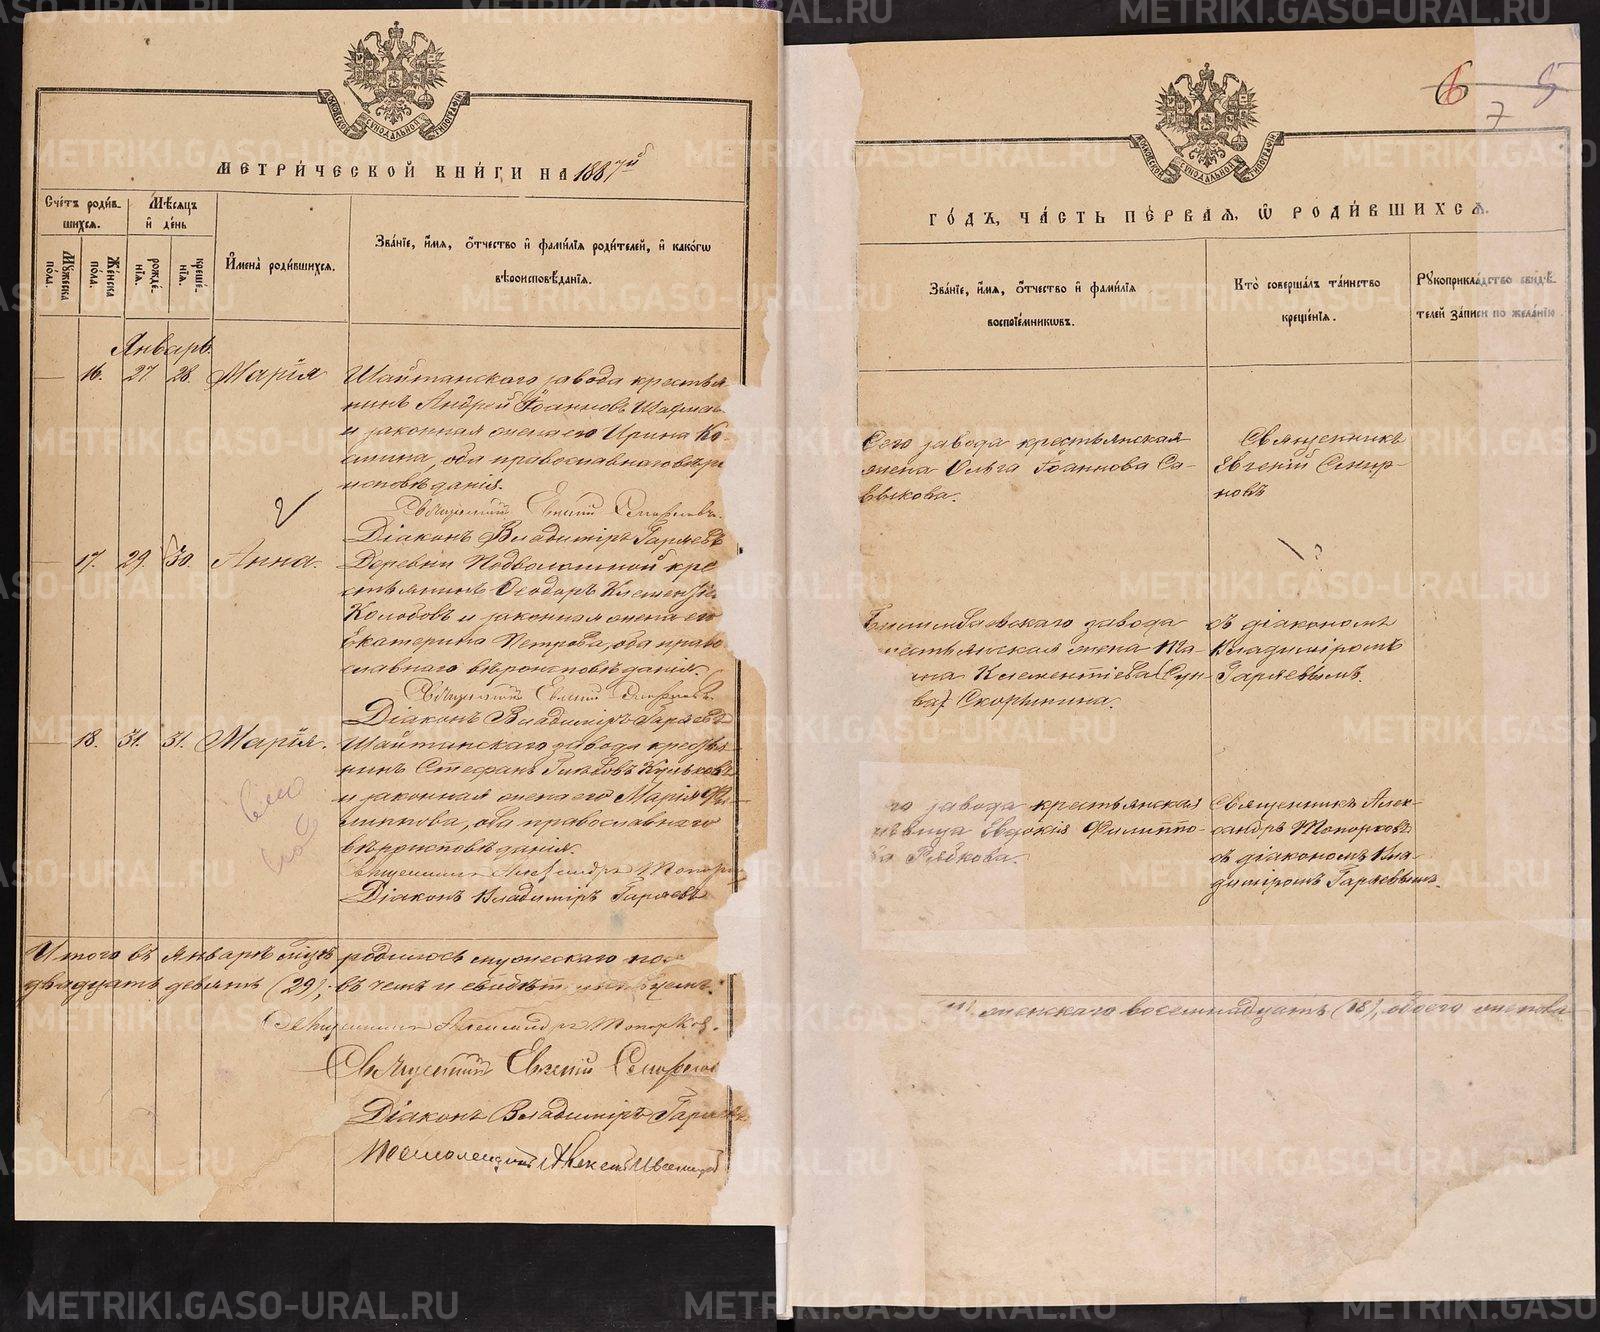 МЕТРИ́ЧЕСКОЙ КНИ́ГИ НА 1887й
Сче́тъ роди́в-
шихся.
Мѣ́сяцъ
и҆ де́нь
Му́жеска
по́ла.
Же́нска
по́ла.
рожде́-
нїя.
креще́-
нїя.
И҆мена̀ роди́вшихся.
Зва́нїе, и҆́мя, ѻ҆́тчество и҆ фамилїя роди́телей, и҆ како́гѡ
вѣроисповѣ́данїя.
Январь.
16. 27 28. Марія
Шайтанскаго завода крестья
нинъ Андрей Іоанновъ
и законная жена его Ирина Ко-
, оба православнаго вѣро
исповѣданія.
Священникъ Евгеній
Діаконъ Владиміръ Гаряевъ
17. 29. 30. Анна.
Деревни Подволошной кре
стьянинъ Ѳеодоръ Клементіев
Колобовъ и законная жена его
Екатерина Петрова, оба право
славнаго вѣроисповѣданія.
Священникъ Евгеній
Діаконъ Владиміръ Гаряевъ
18. 31. 31. Марія.
Шайтанскаго завода крестья-
нинъ Стефанъ
и законная жена его Марія Фи-
липпова, оба православнаго
вѣроисповѣданія.
Священникъ Александръ Топор
Діаконъ Владиміръ Гаряевъ
Итого въ Январѣ мцѣ родилось мужескаго по
двадцать девять (29);
въ чемъ и
Священникъ Александръ Топорков.
Священникъ Евгеній
Діаконъ Владиміръ Гаряевъ
Псаломщикъ Алексѣй
6 5
7
ГО́ДЪ, ЧА́СТЬ ПЕ́РВАЯ, Ѿ РОДИ́ВШИХСЯ.
Зва́нїе, и҆́мя, ѻ҆́тчество и҆ фамилїя
воспрїе́мникѡвъ.
Кто̀ соверша́лъ та́инство
креще́нїя.
Рꙋкоприкла́дство свидѣ́-
телей за́писи по жела́нїю.
Сего завода крестьянская
жена Ольга Іоаннова Са-
выкова.
Священникъ
Евгеній Смир-
новъ
?
Билимбаевскаго завода
крестьянская жена Та-
на Клементіева (Сун-
ва). Скорынина.
съ діакономъ
Владиміромъ
Гаряевымъ.
го завода крестьянская
дѣвица Евдокія Филиппо-
ва Рябкова.
Священникъ Алек-
сандръ Топорковъ
съ діакономъ Вла-
диміромъ Гаряевымъ.
женскаго восемнадцать (18), обоего
METRIKI.GASO-URAL.RU